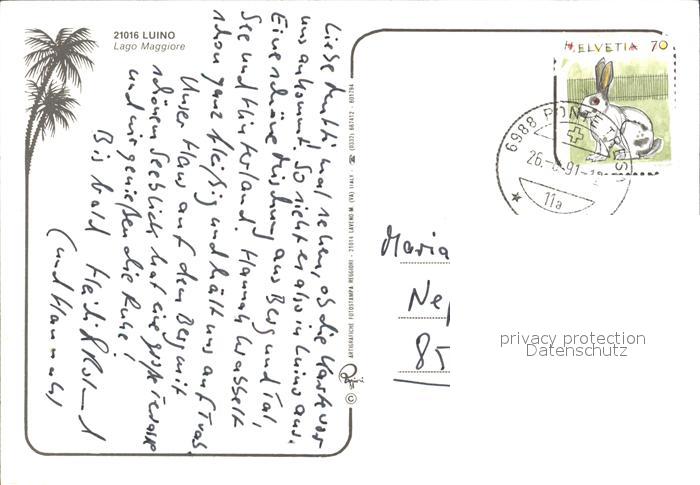 21016 LUINO
Lago Maggiore
Liebe Mutti, mal sehen, ob die Karte vor
uns ankommt! So sieht es also in Luino aus.
Eine schöne Mischung aus Berg und Tal,
See und Hinterland. Hannah krabbelt
schon ganz fleißig und hält uns auf Trab.
Unser Haus auf dem Berg mit
schönem Seeblick hat eine große Terasse
und wir genießen die Ruhe!
Bis bald Heidi & Roland
(und Hannah)
ARTIGRAFICHE FOTOSTAMPA REGGIORI - 21014 LAVENO M. (VA) ITALY - (0332) 667412 - 601294
©
HELVETIA 70
6988 PONTE TRESA
26. 91-
11a
Maria
Ne
85
privacy protection
Datenschutz